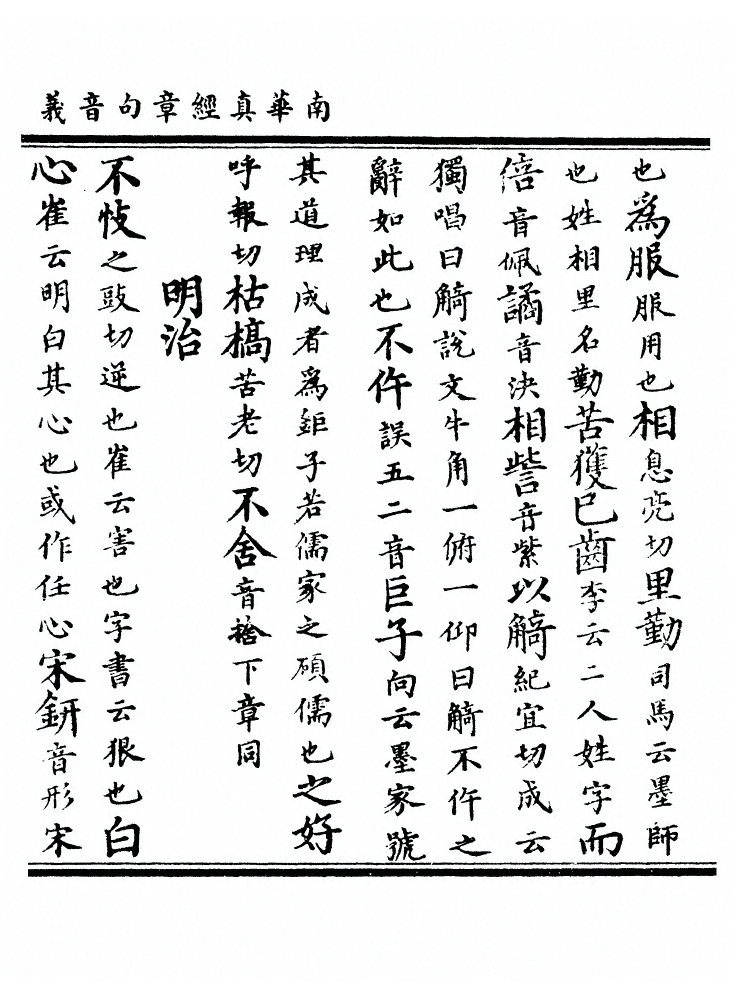 南華真經章句音義
也爲服服用也相息亮切里勤司馬云墨師
也姓相里名勤苦獲已齒李云二人姓字而
倍音佩譎音決相訾音紫以觭紀宜切成云
獨唱曰觭說文牛角一俯一仰曰觭不仵之
辭如此也不仵誤五二音巨子向云墨家號
其道理成者爲鉅子若儒家之碩儒也之好
呼報切枯槁苦老切不舍音捨下章同
明治
不忮之豉切逆也崔云害也字書云狠也白
心崔云明白其心也或作任心宋鈃音形宋